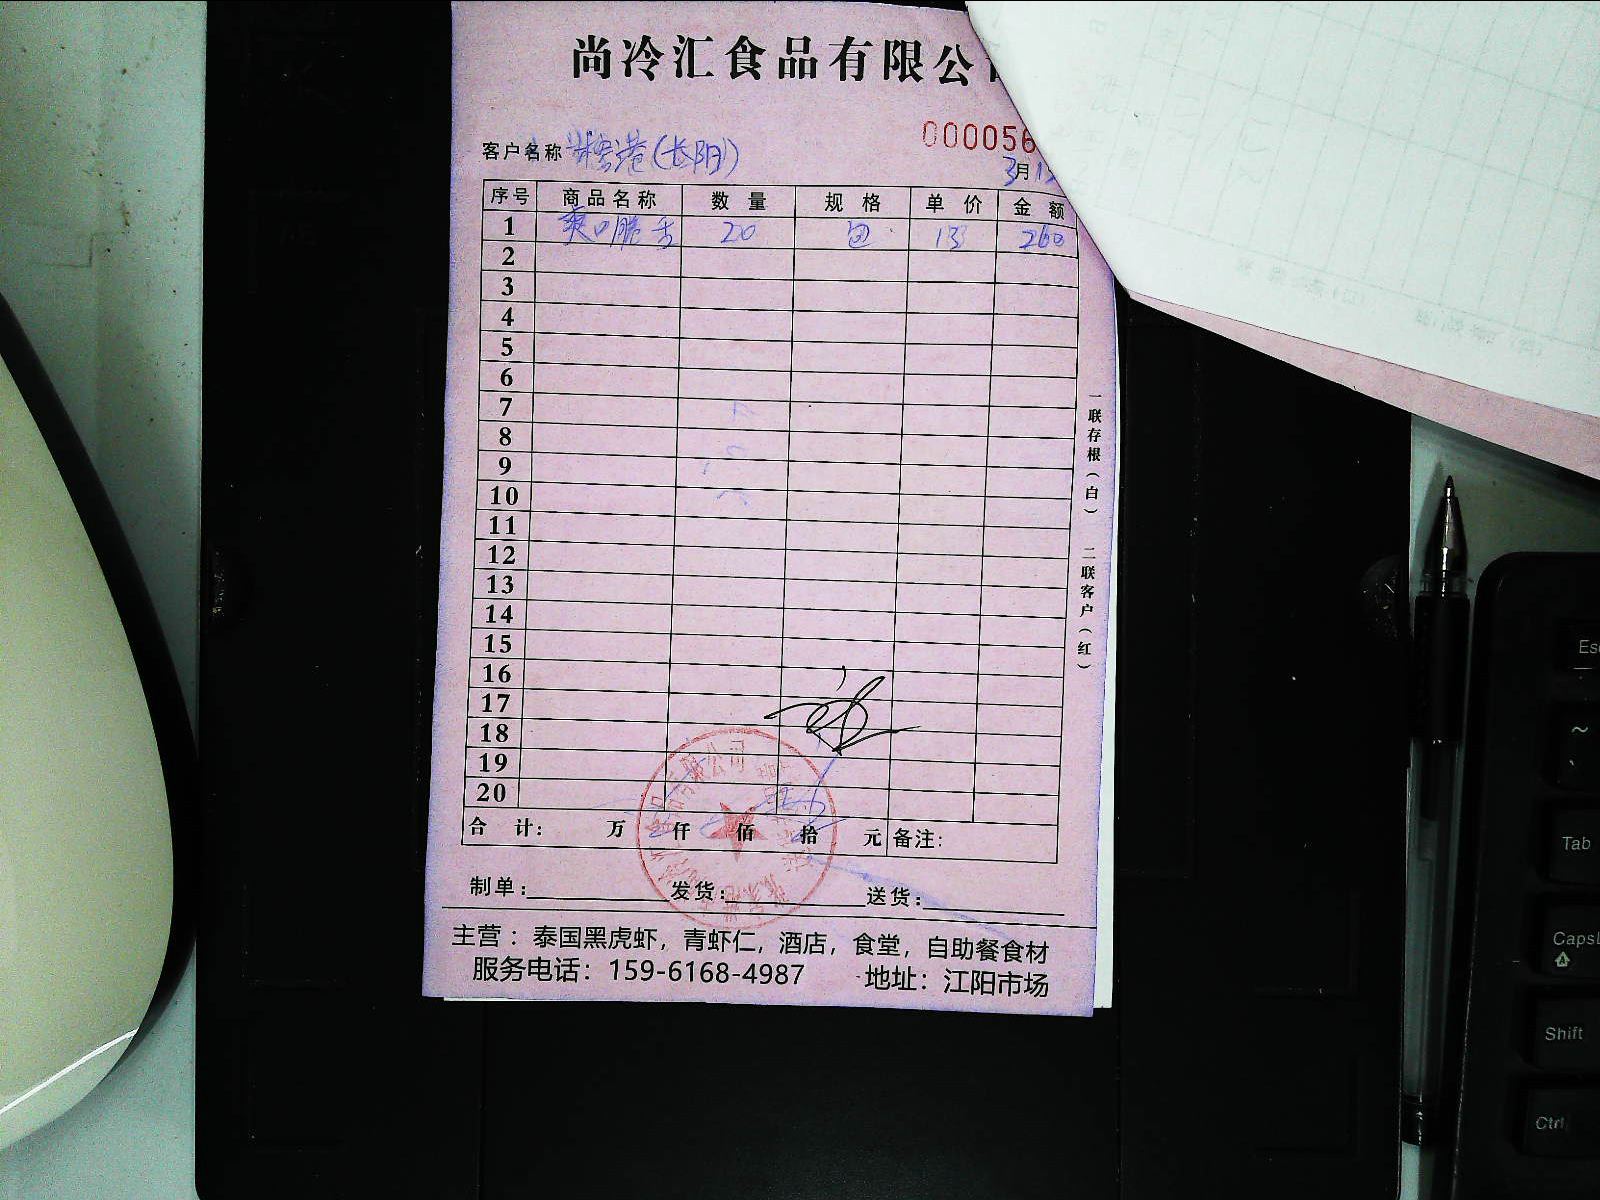 尚冷汇食品有限公
000056
客户名称 港(长阴)
3月1
序号 商品名称 数量 规格 单价 金额
1 爽口脆舌 20 包 13 260
2
3
4
5
6
7
8
9
10
11
12
13
14
15
16
17
18
19
20
合计: 万 仟 佰 拾 元 备注:
制单: 发货: 送货:
主营：泰国黑虎虾，青虾仁，酒店，食堂，自助餐食材
服务电话：159-6168-4987 地址：江阳市场
一联存根（白） 二联客户（红）
限公司
Esc
~
Tab
CapsL
Shift
Ctrl